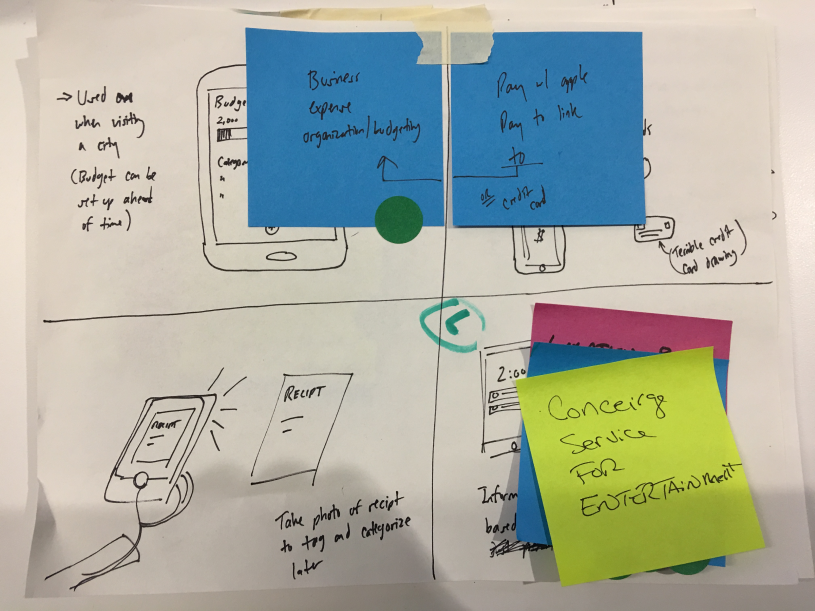 → Used
when visiting
a city
(Budget can be
set up ahead
of time)
Budge
2,000
Categor
"
"
Business
expense
organization/budgeting
Pay w/ apple
Pay to link
to
OR credit
card
ds
$
(Terrible credit
card drawing)
L
RECIPT
RECIPT
Take photo of recipt
to tag and categorize
later
2:00
Inform
based
Conceirge
Service
FOR
ENTERTAINMENT